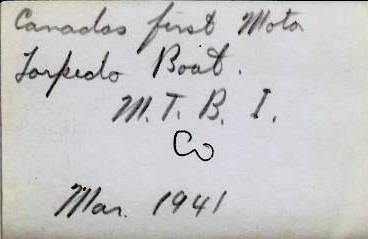 Canadas first Moto
Torpedo Boat.
M.T.B. I.
Co
Mar. 1941